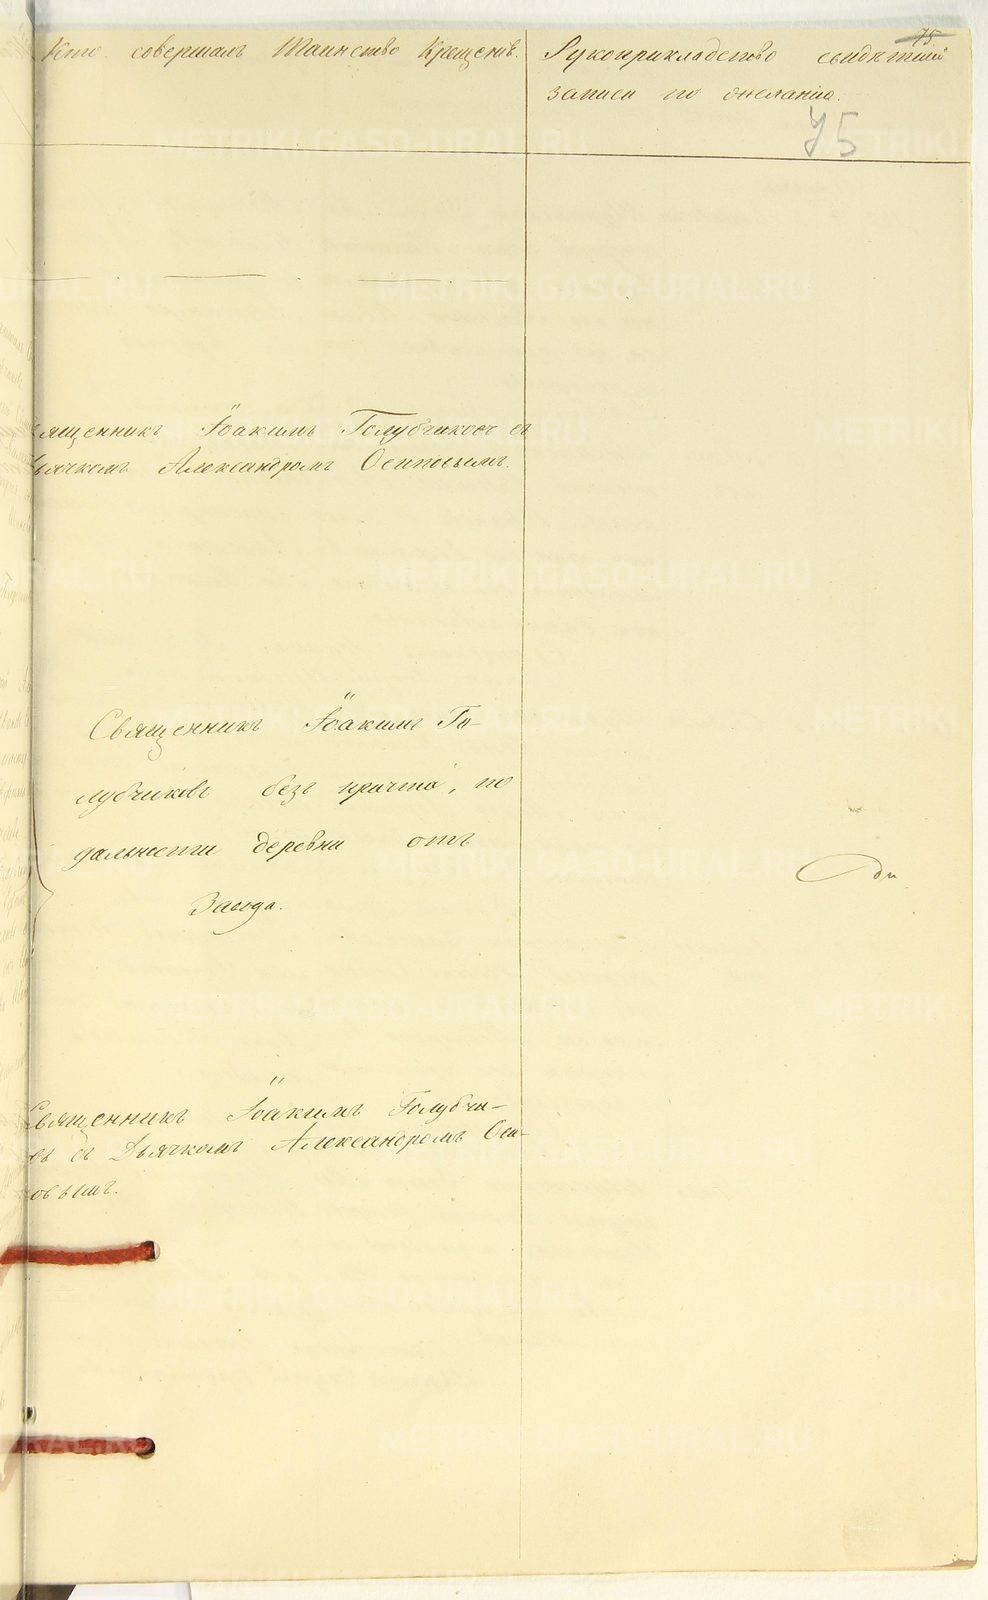 75
Кто совершалъ Таинство Крещенія.
Рукоприкладство свидѣтелей
записи по желанію.
75
священникъ Іоакимъ Голубчиковъ съ
Дьячкомъ Александромъ Осиповымъ.
Священникъ Іоакимъ Го-
лубчиковъ безъ причта, по
дальности деревни отъ
Завода.
Священникъ Іоакимъ Голубчи-
въ съ Дьячкомъ Александромъ Оси-
повымъ.
METRIKI.GASO-URAL.RU